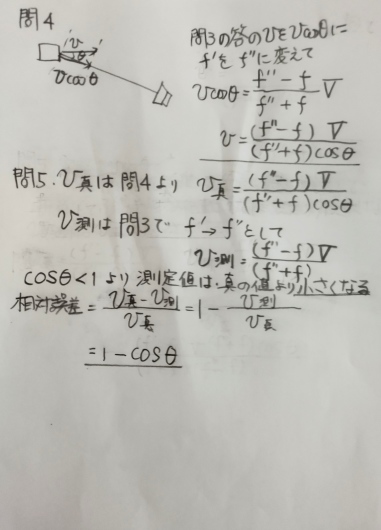 問4
v
θ
vcosθ
問3の答のvをvcosθに
f'をf''に変えて
vcosθ = (f''-f)/(f''+f) V
v = (f''-f) V/(f''+f)cosθ
問5. v真は問4より v真 = (f''-f) V/(f''+f)cosθ
v測は問3で f'→f''として
v測 = (f''-f)V/(f''+f)
cosθ<1より測定値は、真の値より小さくなる
相対誤差 = (v真-v測)/v真 = 1 - v測/v真
= 1-cosθ